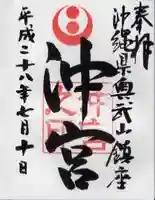 奉拝
沖縄県奥武山鎮座
沖宮
平成二十八年七月十日